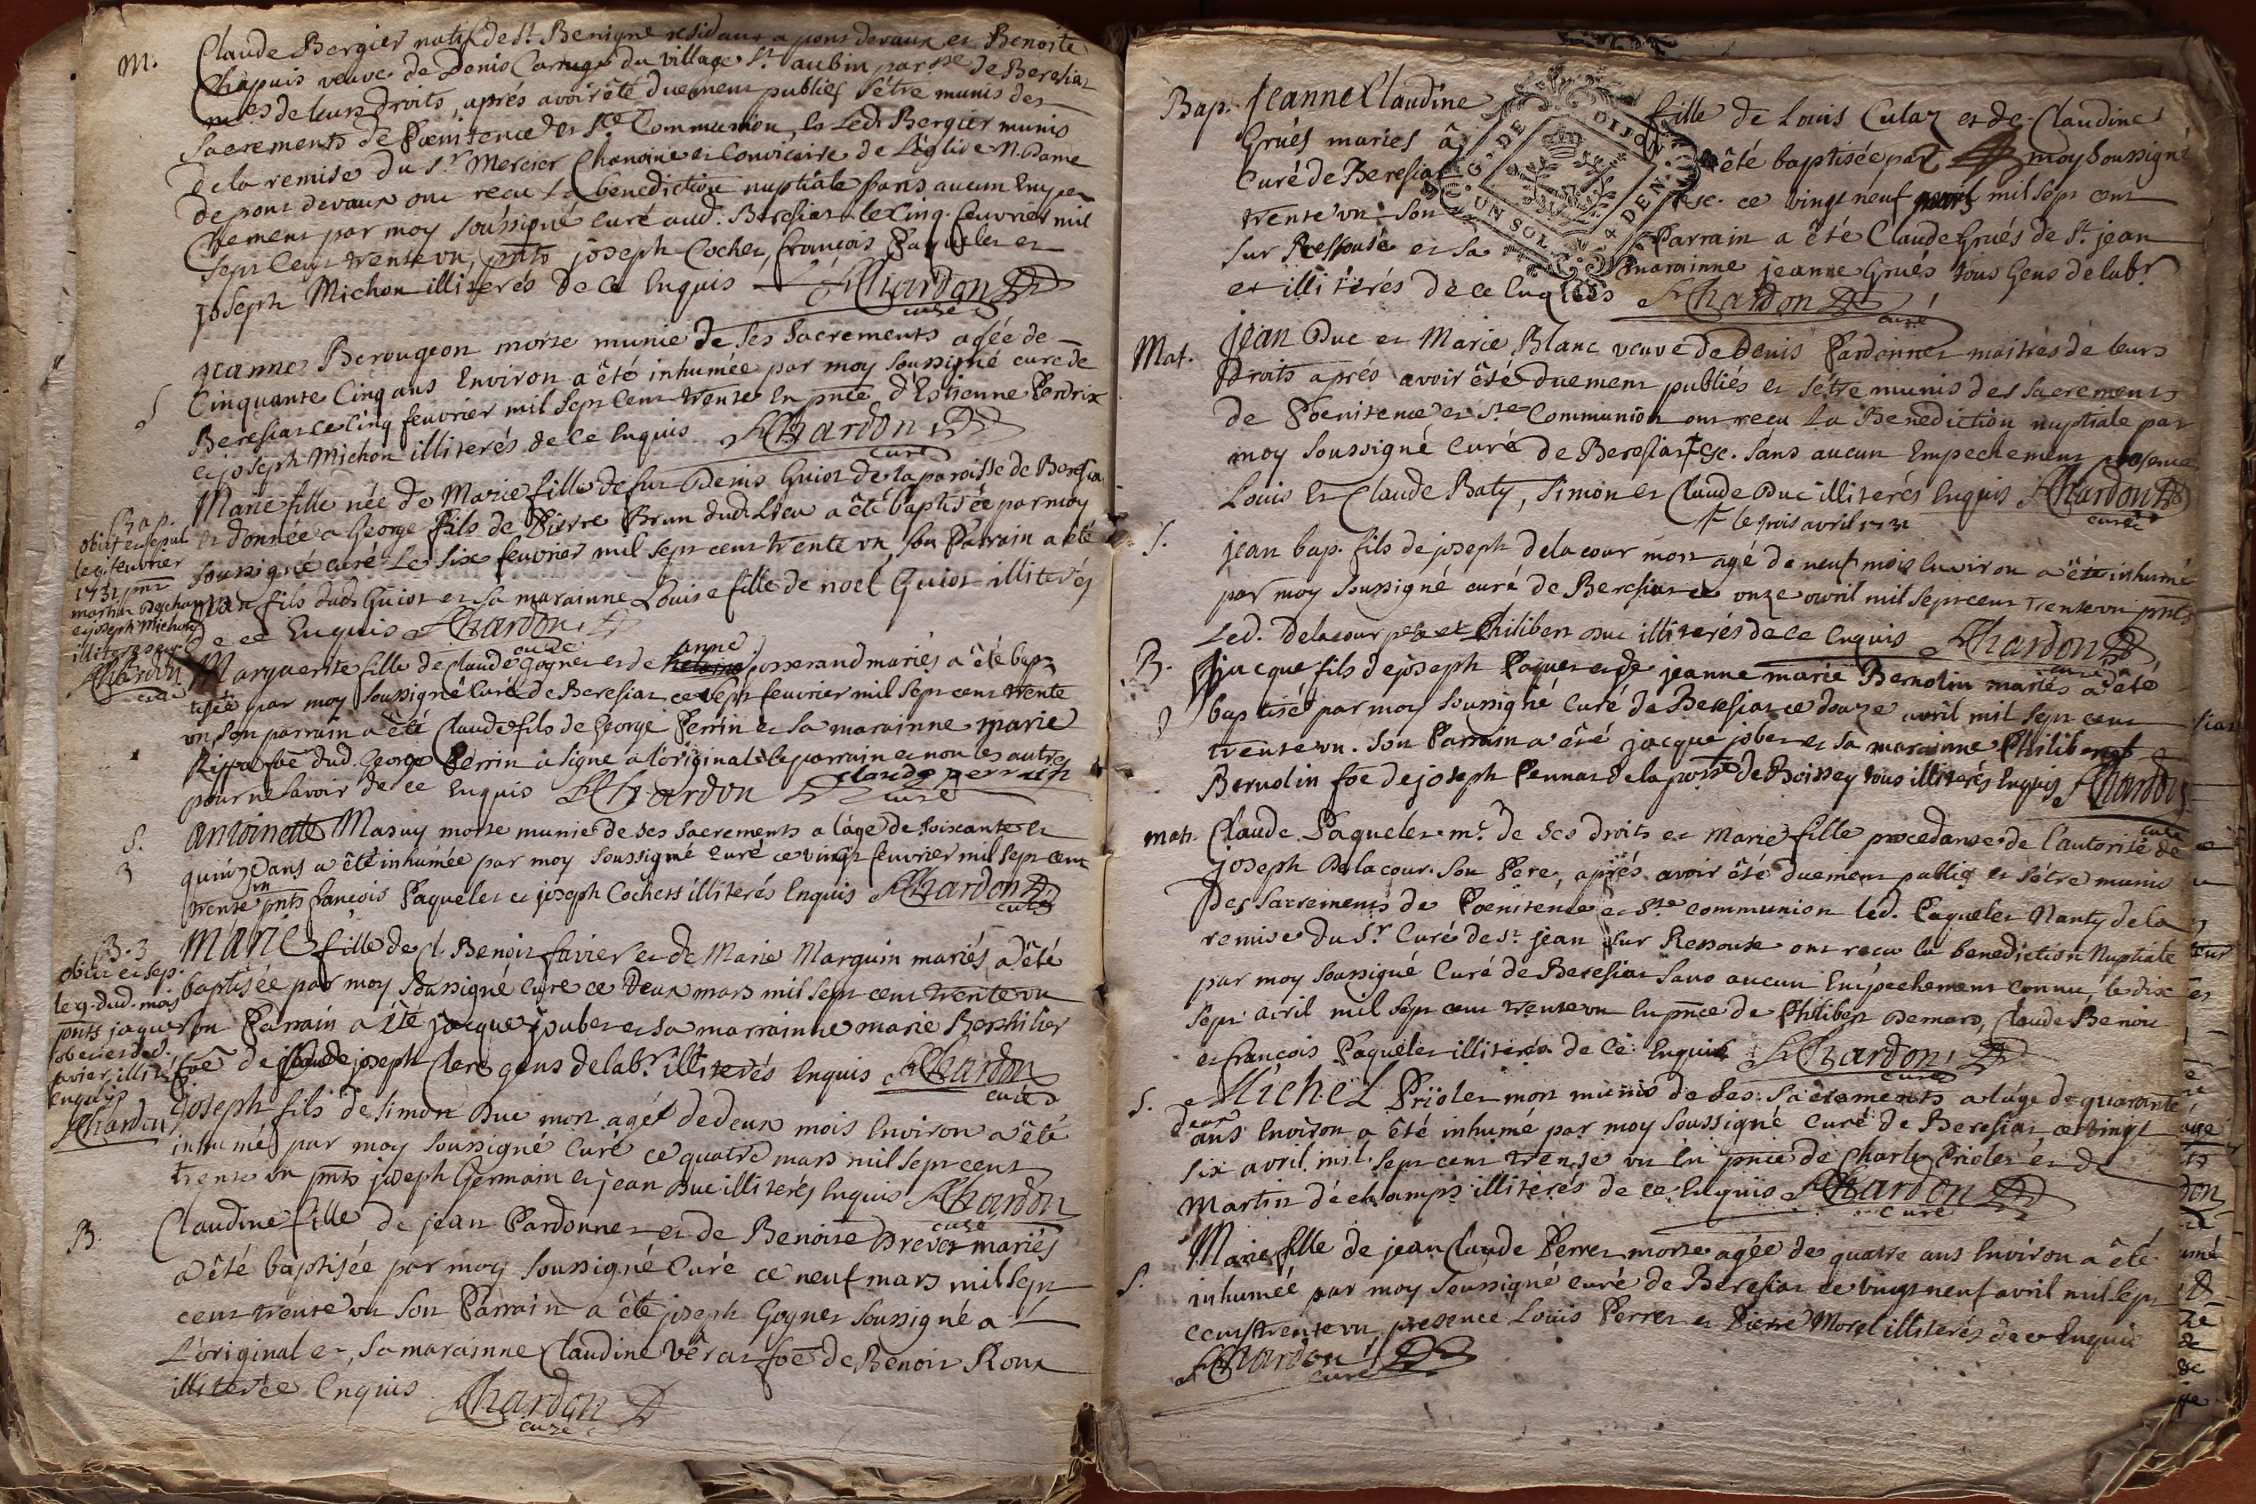 M. Claude Bergier natif de St. Benigne residant a pont devaux et Benoite
Chapuis veuve de Denis Carruge du village St. aubin par.sse de Beresiat
m.es de leurs droits, aprés avoir êté duement publies s'étre munis des
sacrements de Poenitence et Ste Communion, et Led. Bergier munis
de la remise du Sr. Mercier Chanoine et Convicaire de L'église N. Dame
de pont devaux ont recu la benediction nuptiale sans aucun Empe
chement par moy soussigné curé aud. Beresiat le Cinq. feuvrier mil
sept Cent trente vn, pnts joseph Cochet, françois Paquelet et
joseph Michon illiterés de ce Enquis Chardon
curé
S jeanne Berougeon morte munie de ses sacrements agée de
Cinquante Cinq ans Environ a êté inhumée par moy soussigné curé de
Beresiat ce Cinq feuvrier mil sept Cent trente En pnce d'Estienne Perdrix
et joseph Michon illiterés de ce Enquis Chardon
curé
Bap. Marie fille née de Marie fille de fut Denis Guiot de la paroisse de Beresiat
et donnée a George fils de Pierre Brun dud. Lieu a êté baptisée par moy
soussigné curé Le six feuvrier mil sept cent trente vn, son Parrain a êté
fils dud. Guiot et sa marainne Louise fille de noel Guiot illiterés
de ce Enquis Chardon
curé
obiit et sepul.
le 9. feuvrier
1731 pnt
martin Dechamp
et joseph Michon
illiterés
Chardon
curé
Marguerite fille de Claude Gognet et de anne posserand mariés a êté bap
tisée par moy soussigné Curé de Beresiat ce sept feuvrier mil sept cent trente
vn, son parrain a êté Claude fils de George Perrin et sa marainne marie
Rippa foe dud. George Perrin a signé a l'original le parrain et non les autres
pour ne savoir de ce Enquis Chardon claude perrin
curé
S.
3
antoinette Masuy morte munie de ses sacrements a l'age de soisceante et
quinze ans a êté inhumée par moy soussigné curé ce vingt feuvrier mil sept cent
trente vn pnts françois Paquelet et joseph Cochet illiterés Enquis Chardon
curé
B. 3 Marie fille de Benoit favier et de Marie Marguin mariés a êté
baptisée par moy soussigné Curé ce Deux mars mil sept cent trente vn
son Parrain a êté jacque jouber et sa marrainne marie Berthilier
foe de joseph Clerc gens de lab.r illiterés Enquis Chardon
curé
obiit et sep.
le 9. dud. mois
pnts jaque
jober et led.
favier illit.
Enquis
Chardon
joseph fils de simon Duc mort agé de deux mois Environ a êté
inhumé par moy soussigné Curé ce quatre mars mil sept cent
trente vn pnts joseph Germain et jean Duc illiterés Enquis Chardon
curé
B. Claudine fille de jean Pardonnet et de Benoite Drevet mariés
a êté baptisée par moy soussigné Curé ce neuf mars mil sept
cent trente vn son Parrain a êté joseph Gognet soussigné a
L'original et, sa marainne Claudine Vêrat foe de Benoit Roux
illiterée Enquis Chardon
curé
Bap. Jeanne Claudine fille de Louis Culaz et de Claudine
Grués mariés â êté baptisée par moy soussigné
Curé de Beresiat ce vingt neuf mars mil sept cent
trente vn. son Parrain a êté Claude Grués de St. jean
sur Ressouse et sa marainne jeanne Grués tous Gens de lab.r
et illiterés de ce Enquis Chardon
curé
G. DE DIJON
UN SOL 4 DEN.
Mat. Jean Duc et Marie Blanc veuve de Denis Pardonnet maitrés de leurs
Droits aprés avoir êté duement publiés et s'étre munis des sacrements
de Poenitence et Ste Communion ont recu La Benediction nuptiale par
moy soussigné Curé de Beresiat &c. sans aucun Empechement presence
Louis et Claude Baty, simon et Claude Duc illiterés Enquis Chardon
curé
le trois avril 1731
S. jean bap. fils de joseph delacour mort agé de neuf mois Environ a êté inhumé
par moy soussigné curé de Beresiat ce onze avril mil sept cent trente vn pnts
Led. delacour pere et Philibert Duc illiterés de ce Enquis Chardon
curé
B. jacque fils de joseph Paquet et de jeanne marie Bernolin mariés a êté
baptisé par moy soussigné Curé de Beresiat ce douze avril mil sept cent
trente vn. son Parrain a êté jacque jober et sa marainne Philiberte
Bernolin foe de joseph Pennat de la par.sse de Boissey tous illiterés Enquis Chardon
curé
Mat. Claude Paquelet m.e de ses droits et Marie fille procedante de l'autorité de
joseph Delacour son Pere, aprés avoir êté duement publies et s'étre munis
des sacrements de Poenitence et Ste communion led. Paquelet Nanty de la
remise du Sr. Curé de St. jean sur Ressouse ont recu la benediction Nuptiale
par moy soussigné Curé de Beresiat sans aucun Empechement connu, le dix
sept avril mil sept cent trente vn En pnce de Philibert Demard, Claude Benoit
et françois Paquelet illiterés de ce Enquis Chardon
curé
S. Michel Priolet mort munis de ses sacrements a l'age de quarante
deux ans Environ a êté inhumé par moy soussigné Curé de Beresiat ce vingt
six avril mil sept cent trente vn En pnce de Charly Priolet et de
Martin déchamps illiterés de ce Enquis Chardon
curé
S. Marie fille de jean Claude Perret morte agée de quatre ans Environ a êté
inhumée par moy soussigné curé de Beresiat ce vingt neuf avril mil sept
cent trente vn presence Louis Perret et Pierre Morel illiterés de ce Enquis
Chardon
curé